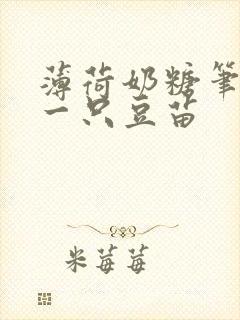 薄荷奶糖笔
一只豆苗
米莓莓